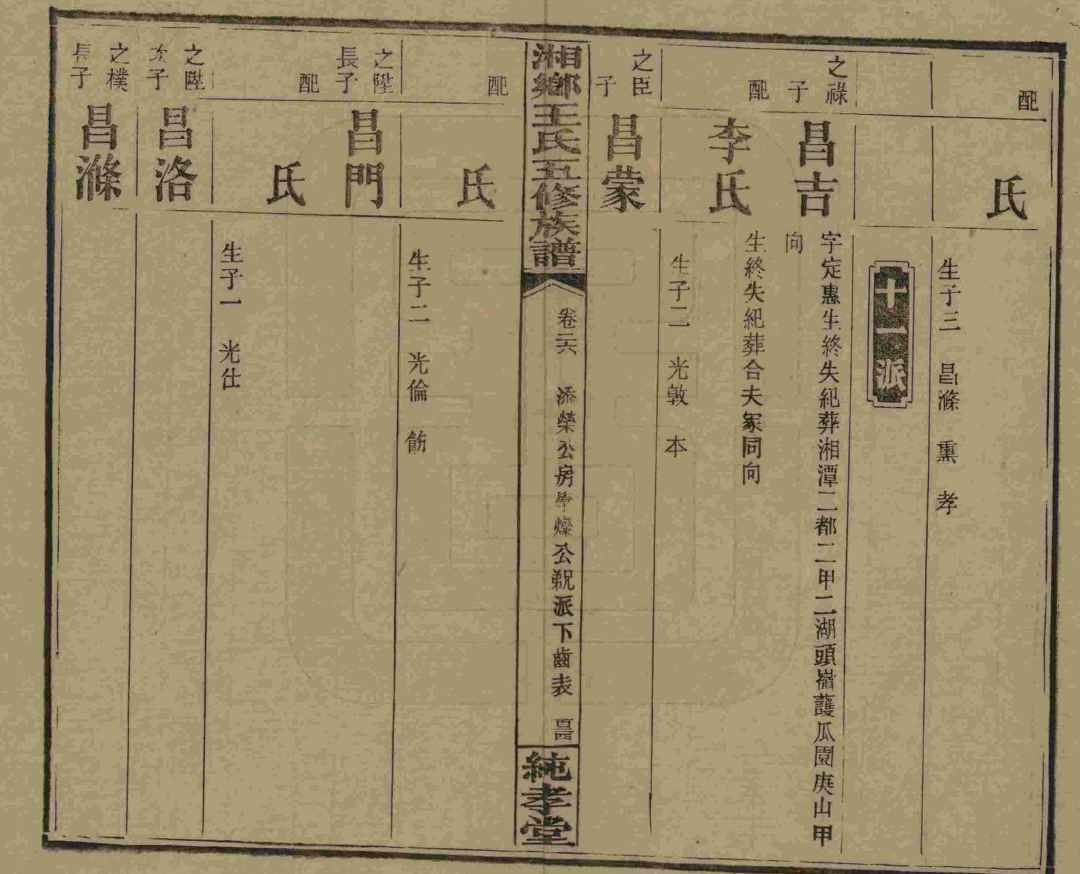 配
氏
生子三 昌滌 熏 孝
十一派
之祿
子
昌吉
字定惠生終失紀葬湘潭二都二甲二湖頭嶺護瓜園庚山甲
向
配
李氏
生終失紀葬合夫冢同向
之臣
子
昌蒙
生子二 光敦 本
湘鄉王氏五修族譜
卷二六 添榮公房 公 派下齒表
純孝堂
配
氏
生子二 光倫 飭
之陞
長子
昌門
配
氏
生子一 光仕
之陞
次子
昌洛
之樸
長子
昌滌